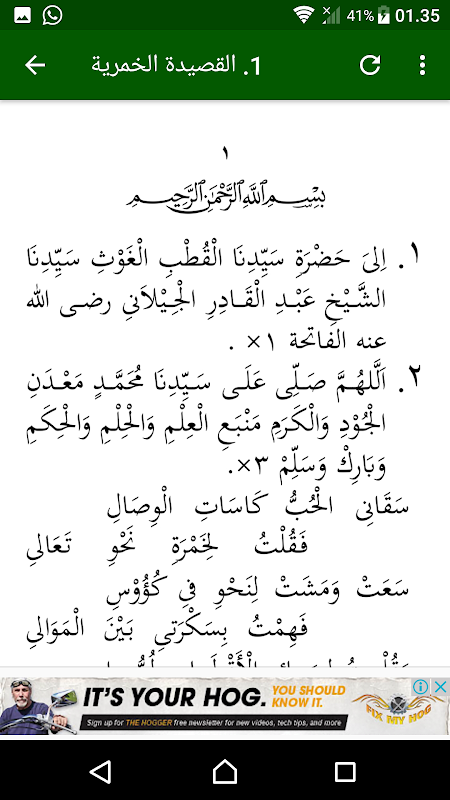 41% 01.35
1. القصيدة الخمرية
١
بِسْمِ اللهِ الرَّحْمٰنِ الرَّحِيمِ
١. اِلىَ حَضْرَةِ سَيِّدِنَا الْقُطْبِ الْغَوْثِ سَيِّدِنَا
الشَّيْخِ عَبْدِ الْقَادِرِ الْجِيْلاَنِي رضى الله
عنه الفاتحة ١× .
٢. اَللَّهُمَّ صَلِّى عَلَى سَيِّدِنَا مُحَمَّدٍ مَعْدَنِ
الْجُوْدِ وَالْكَرَمِ مَنْبَعِ الْعِلْمِ وَالْحِلْمِ وَالْحِكَمِ
وَبَارِكْ وَسَلِّمْ ٣×.
سَقَانِى الْحُبُّ كَاسَاتِ الْوِصَالِ
فَقُلْتُ لِخَمْرَةِ نَحْوِ تَعَالِى
سَعَتْ وَمَشَتْ لِنَحْوِ فِى كُؤُوْسِ
فَهِمْتُ بِسَكْرَتِى بَيْنَ الْمَوَالِى
IT'S YOUR HOG. YOU SHOULD KNOW IT.
Sign up for THE HOGGER free newsletter for new videos, tech tips, and more
FIX MY HOG